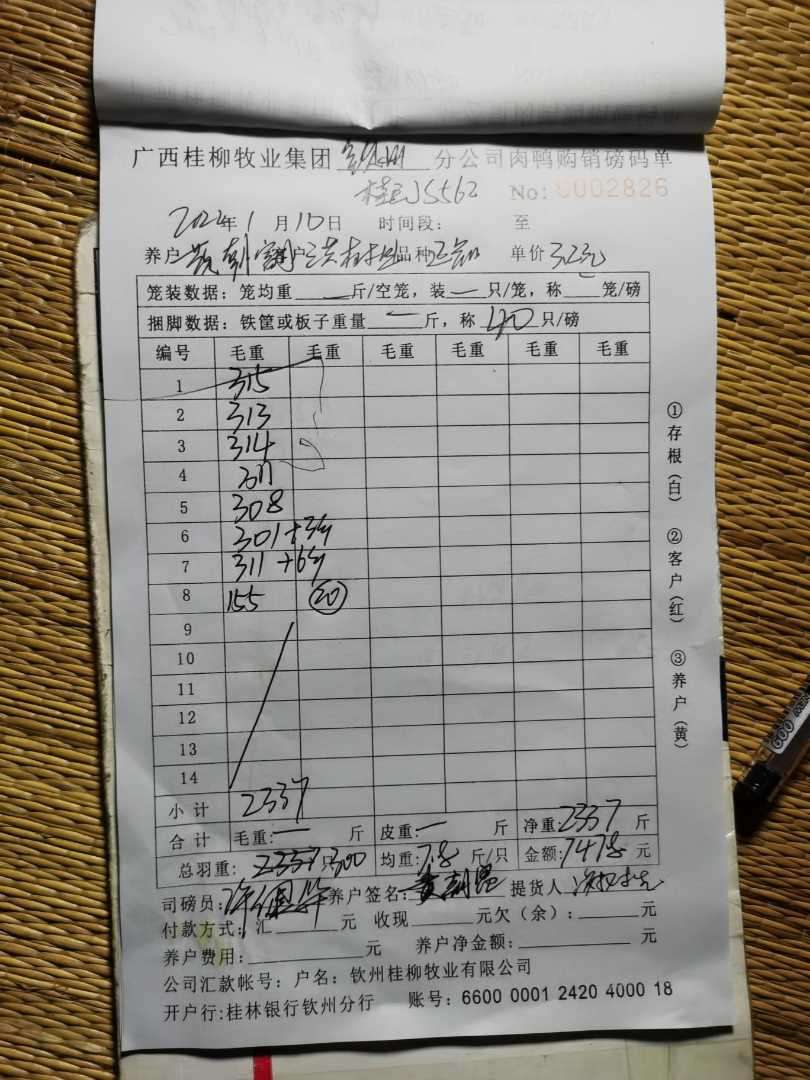 广西桂柳牧业集团 钦州 分公司肉鸭购销磅码单
桂 JS562 No: 6002826
2022年1月10日 时间段: 至
养户 朝 客户 品种 单价 3.2元
笼装数据: 笼均重 — 斤/空笼, 装 — 只/笼, 称 笼/磅
捆脚数据: 铁筐或板子重量 — 斤, 称 40 只/磅
编号 毛重 毛重 毛重 毛重 毛重 毛重
1 315
2 313
3 314
4 311
5 308
6 301 +3斤
7 311 +6斤
8 155 20
9
10
11
12
13
14
小计 2337
合计 毛重: — 斤 皮重: — 斤 净重: 2337 斤
总羽重: 只 300 均重: 7.8 斤/只 金额: 7478 元
司磅员: 许 养户签名: 黄朝昆 提货人
付款方式: 汇 元 收现 元欠(余): 元
养户费用: 元 养户净金额: 元
公司汇款帐号: 户名: 钦州桂柳牧业有限公司
开户行:桂林银行钦州分行 账号: 6600 0001 2420 4000 18
①存根(白) ②客户(红) ③养户(黄)